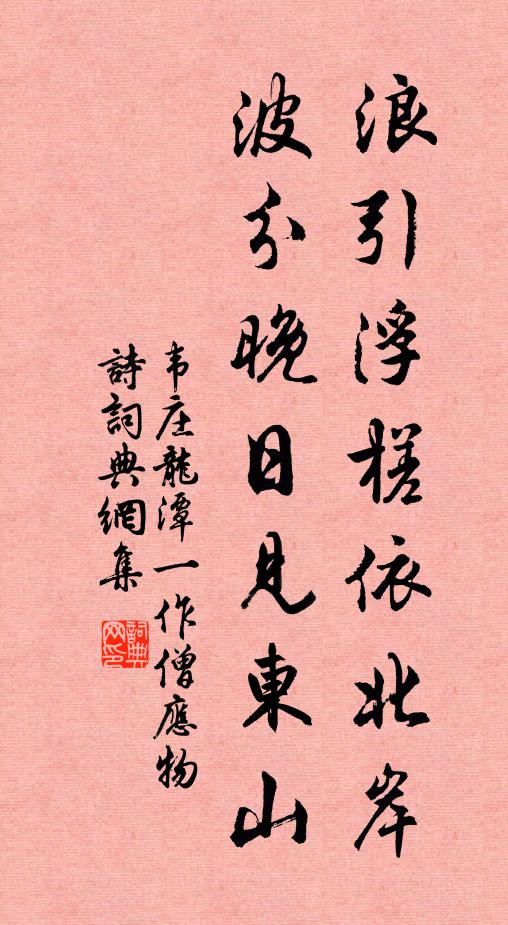 浪引浮槎依北岸
波分晚日見東山
韦庄龍潭一作僧應物
詩詞典網集
詞典网印